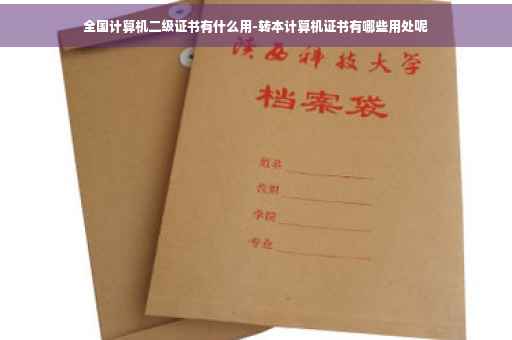 全国计算机二级证书有什么用-转本计算机证书有哪些用处呢
陕西科技大学
档案袋
姓名
学院
专业